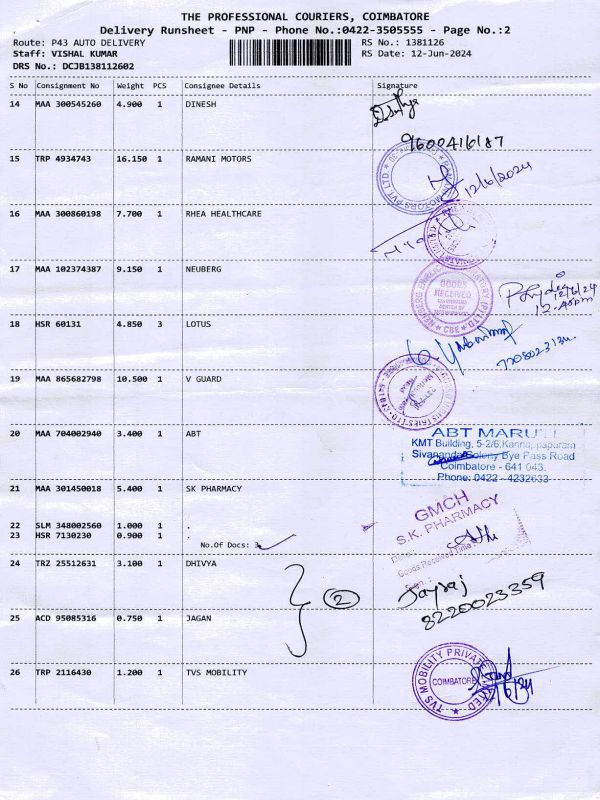 THE PROFESSIONAL COURIERS, COIMBATORE
Delivery Runsheet - PNP - Phone No.:0422-3505555 - Page No.:2
Route: P43 AUTO DELIVERY
RS No.: 1381126
Staff: VISHAL KUMAR
RS Date: 12-Jun-2024
DRS No.: DCJB138112602
S No Consignment No Weight PCS Consignee Details Signature
14 MAA 300545260 4.900 1 DINESH
9600416187
15 TRP 4934743 16.150 1 RAMANI MOTORS
12/6/2024
16 MAA 300860198 7.700 1 RHEA HEALTHCARE
17 MAA 102374387 9.150 1 NEUBERG
GOODS RECEIVED
CBE
12/6/24
18 HSR 60131 4.850 3 LOTUS
19 MAA 865682798 10.500 1 V GUARD
20 MAA 704002940 3.400 1 ABT
ABT MARUTI
KMT Building, 5-2/6,
Sivananda Colony Bye Pass Road
Coimbatore - 641 043.
Phone: 0422 - 4232633
21 MAA 301450018 5.400 1 SK PHARMACY
GMCH
S.K. PHARMACY
Goods Received Time
22 SLM 348002560 1.000 1 .
23 HSR 7130230 0.900 1 .
No.Of Docs: 3
24 TRZ 25512631 3.100 1 DHIVYA
2
Jayraj
8220023359
25 ACD 95085316 0.750 1 JAGAN
26 TRP 2116430 1.200 1 TVS MOBILITY
TVS MOBILITY PRIVATE LIMITED
COIMBATORE